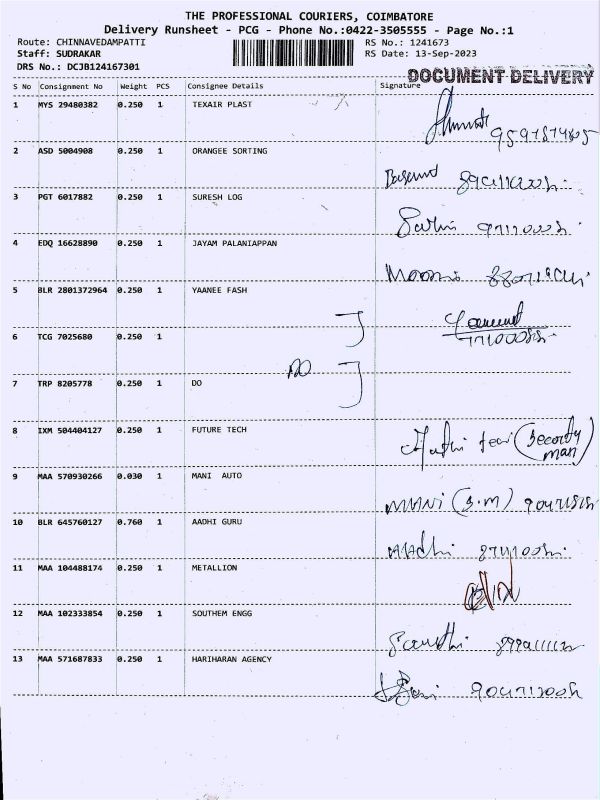 THE PROFESSIONAL COURIERS, COIMBATORE
Delivery Runsheet - PCG - Phone No.:0422-3505555 - Page No.:1
Route: CHINNAVEDAMPATTI RS No.: 1241673
Staff: SUDRAKAR RS Date: 13-Sep-2023
DRS No.: DCJB124167301
DOCUMENT DELIVERY
S No Consignment No Weight PCS Consignee Details Signature
1 MYS 29480382 0.250 1 TEXAIR PLAST
2 ASD 5004908 0.250 1 ORANGEE SORTING
3 PGT 6017882 0.250 1 SURESH LOG
4 EDQ 16628890 0.250 1 JAYAM PALANIAPPAN
5 BLR 2801372964 0.250 1 YAANEE FASH
6 TCG 7025680 0.250 1
DO
7 TRP 8205778 0.250 1 DO
8 IXM 504404127 0.250 1 FUTURE TECH
(Security man)
9 MAA 570930266 0.030 1 MANI AUTO
MANI (S.M)
10 BLR 645760127 0.760 1 AADHI GURU
AAdhi
11 MAA 104488174 0.250 1 METALLION
12 MAA 102333854 0.250 1 SOUTHEM ENGG
13 MAA 571687833 0.250 1 HARIHARAN AGENCY